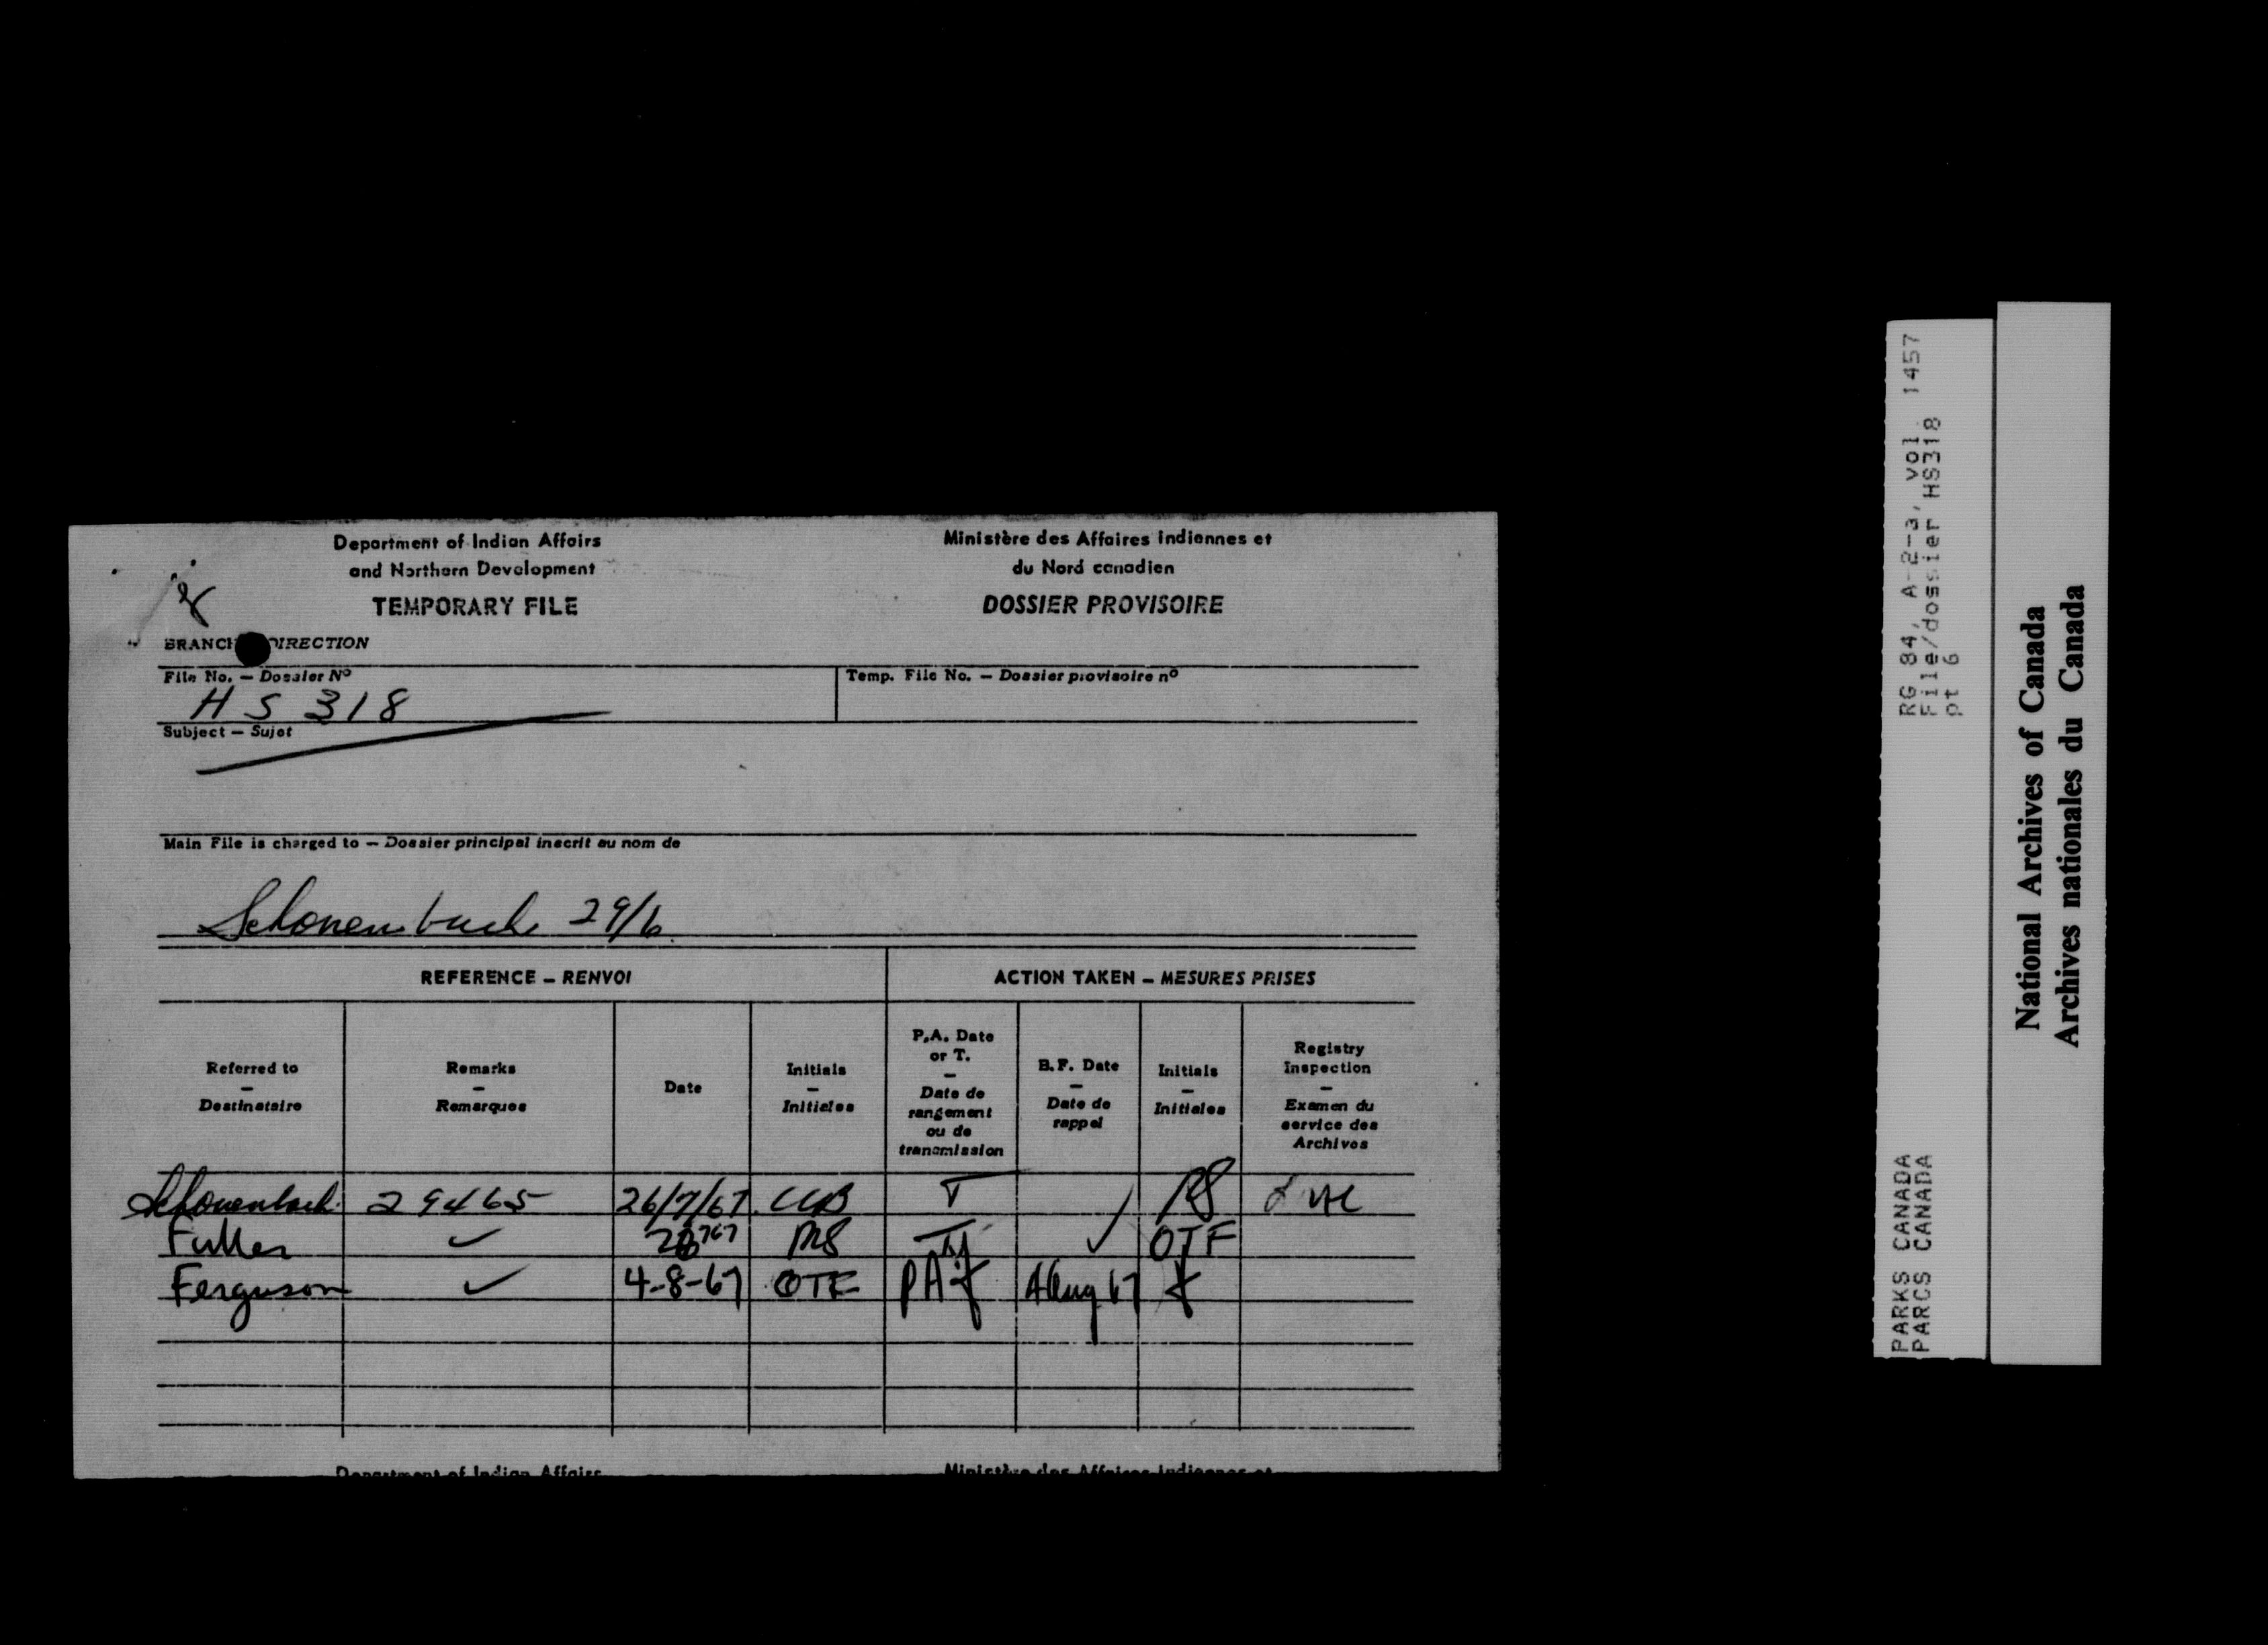 Department of Indian Affairs
and Northern Development
TEMPORARY FILE
Ministère des Affaires indiennes et
du Nord canadien
DOSSIER PROVISOIRE
BRANCH DIRECTION
File No. – Dossier Nº
HS 318
Temp. File No. – Dossier provisoire nº
Subject – Sujet
Main File is charged to – Dossier principal inscrit au nom de
Schonenbach 29/6
REFERENCE – RENVOI
ACTION TAKEN – MESURES PRISES
Referred to
–
Destinataire
Remarks
–
Remarques
Date
Initials
–
Initiales
P.A. Date
or T.
–
Date de
rangement
ou de
transmission
B.F. Date
–
Date de
rappel
Initials
–
Initiales
Registry
Inspection
–
Examen du
service des
Archives
Schonenbach 29465 26/7/67 T RS
Fuller ✓ ✓ OTF
Ferguson ✓ 4-8-67 OTF PA Aug 67
Department of Indian Affairs
Ministère des Affaires indiennes et
RG 84, A-2-a, vol. 1457
File/dossier HS318
pt 6
PARKS CANADA
PARCS CANADA
National Archives of Canada
Archives nationales du Canada